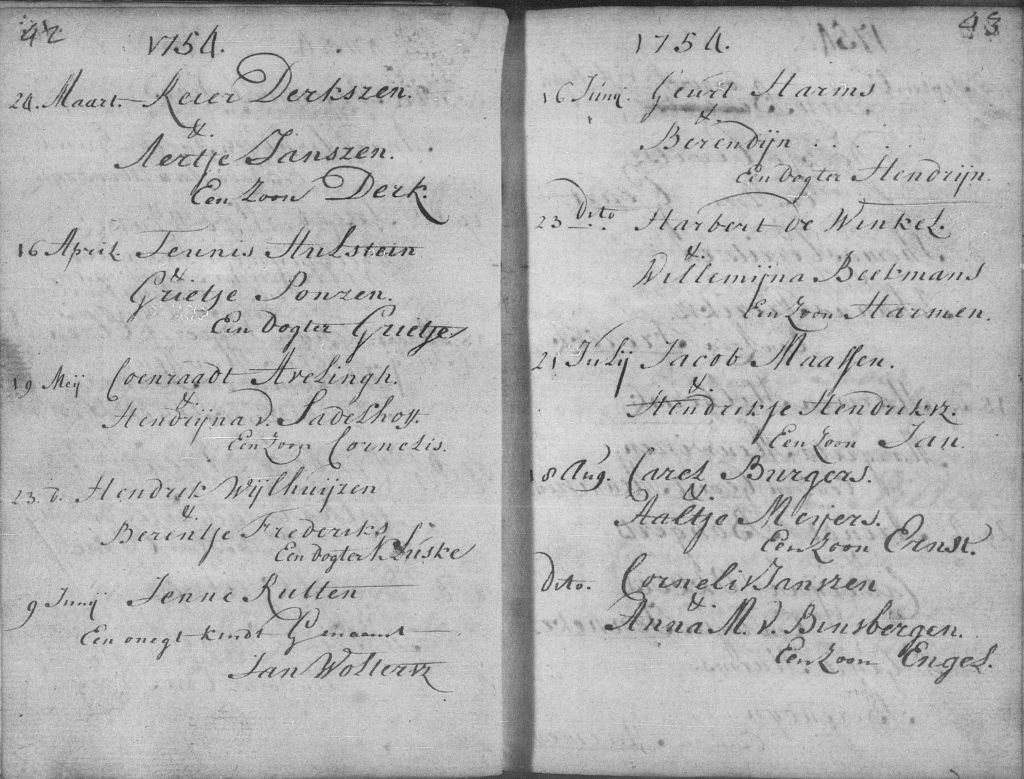 42
1754.
24. Maart. Reier Derkszen.
&.
Aertje Janszen.
Een Zoon Derk.
16 April. Teunis Hulstein
&.
Grietje Ponzen.
Een Dogter Grietje
19 Meij Coenraadt Avelingh.
&
Hendrijna v. Sadelhoff.
Een Zoon Cornelis.
23. d. Hendrik Wijlhuijzen
&
Berentje Frederiks.
Een Dogter Luske
9 Junij Jenne Rutten
Een onegt kindt Genaamt
Jan Wolterz
43
1754.
16 Junij Geurt Harms
&.
Berendijn . . . . .
Een Dogter Hendrijn.
23 Dito Harbert de Winkel.
&.
Willemijna Beekmans
Een Zoon Harmen.
21 Julij Jacob Maassen.
&.
Hendrikje Hendrikz.
Een Zoon Jan.
18 Aug. Carel Burgers.
&.
Aaltje Meijers.
Een Zoon Ernst.
Dito. Cornelis Janszen
&.
Anna M. v. Binsbergen.
Een Zoon Engel.